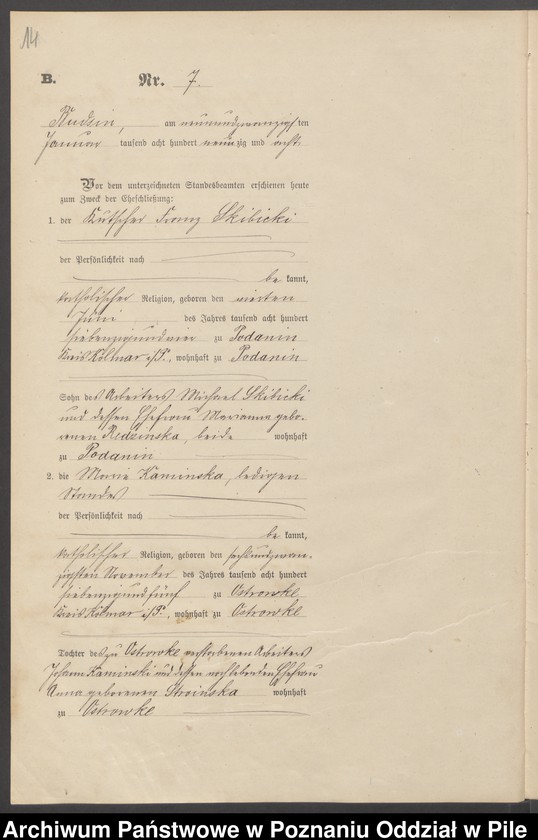 14
B. Nr. 7.
Rudzin, am neunundzwanzigsten
Januar tausend acht hundert neunzig und acht
Vor dem unterzeichneten Standesbeamten erschienen heute
zum Zweck der Eheschließung:
1. der Kutscher Franz Skibicki
der Persönlichkeit nach
bekannt,
katholischer Religion, geboren den vierten
Juni des Jahres tausend acht hundert
siebenzigundvier zu Podanin
Kreis Kolmar i/P., wohnhaft zu Podanin
Sohn des Arbeiters Michael Skibicki
und dessen Ehefrau Marianna gebo-
renen Redzinska, beide wohnhaft
zu Podanin
2. die Marie Kaminska, ledigen
Standes
der Persönlichkeit nach
bekannt,
katholischer Religion, geboren den sechsundzwan-
zigsten November des Jahres tausend acht hundert
siebenzigundfünf zu Ostrowke
Kreis Kolmar i/P., wohnhaft zu Ostrowke
Tochter des zu Ostrowke verstorbenen Arbeiters
Johann Kaminski und dessen noch lebenden Ehefrau
Anna geborenen Stroinska wohnhaft
zu Ostrowke
Archiwum Państwowe w Poznaniu Oddział w Pile